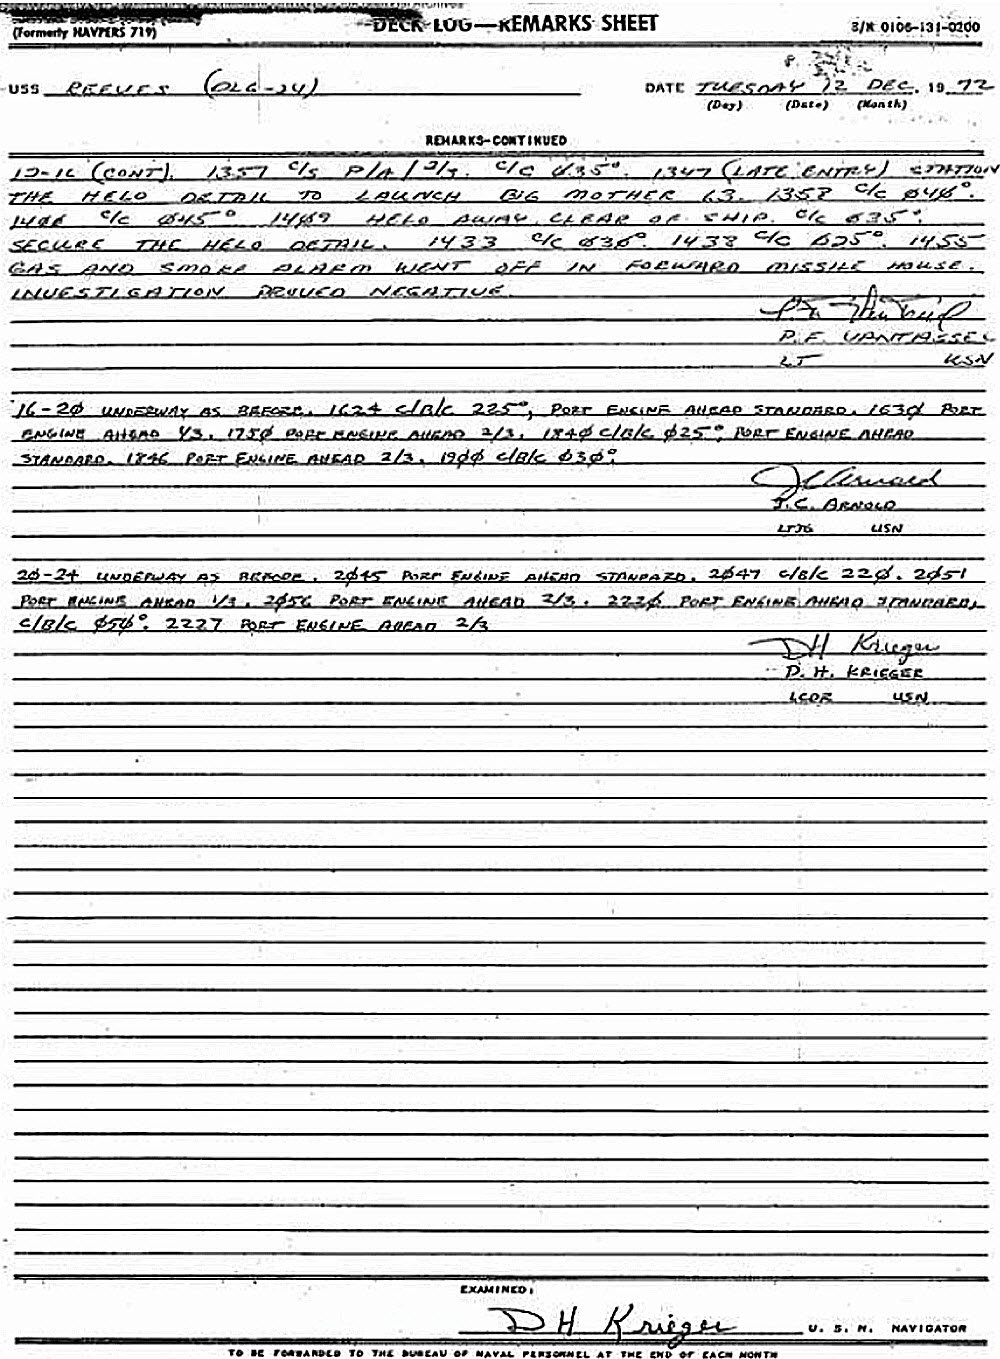 (Formerly NAVPERS 719)
DECK LOG—REMARKS SHEET
S/N 0106-131-0200
USS REEVES (DLG-24)
DATE TUESDAY 12 DEC. 19 72
(Day) (Date) (Month)
REMARKS-CONTINUED
12-16 (CONT). 1357 C/S P/A/ 2/3. C/C Ø35°. 1347 (LATE ENTRY) STATION
THE HELO DETAIL TO LAUNCH BIG MOTHER 63. 1358 C/C Ø4Ø°.
C/C Ø45° 14Ø9 HELO AWAY, CLEAR OF SHIP. C/C Ø35°,
SECURE THE HELO DETAIL. 1433 C/C Ø30°. 1438 C/C Ø25°. 1455
GAS AND SMOKE ALARM WENT OFF IN FORWARD MISSILE HOUSE.
INVESTIGATION PROVED NEGATIVE.
P.F. VANTASSEL
LT USN
16-2Ø UNDERWAY AS BEFORE. 1624 C/B/C 225°, PORT ENGINE AHEAD STANDARD. 163Ø PORT
ENGINE AHEAD 1/3. 175Ø PORT ENGINE AHEAD 2/3. 184Ø C/B/C Ø25°, PORT ENGINE AHEAD
STANDARD. 1846 PORT ENGINE AHEAD 2/3. 19ØØ C/B/C Ø3Ø°.
J C Arnold
J.C. ARNOLD
LTJG USN
2Ø-24 UNDERWAY AS BEFORE. 2Ø45 PORT ENGINE AHEAD STANDARD. 2Ø47 C/B/C 22Ø. 2Ø51
PORT ENGINE AHEAD 1/3. 2Ø56 PORT ENGINE AHEAD 2/3. 222Ø PORT ENGINE AHEAD STANDARD,
C/B/C Ø5Ø°. 2227 PORT ENGINE AHEAD 2/3
DH Krieger
D. H. KRIEGER
LCDR USN
EXAMINED:
DH Krieger U. S. N. NAVIGATOR
TO BE FORWARDED TO THE BUREAU OF NAVAL PERSONNEL AT THE END OF EACH MONTH